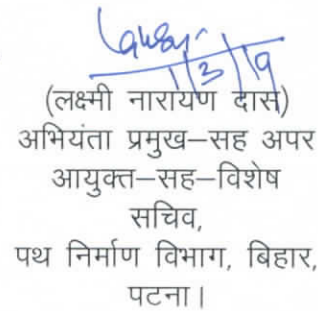 1/3/19
(लक्ष्मी नारायण दास)
अभियंता प्रमुख–सह अपर
आयुक्त–सह–विशेष
सचिव,
पथ निर्माण विभाग, बिहार,
पटना।